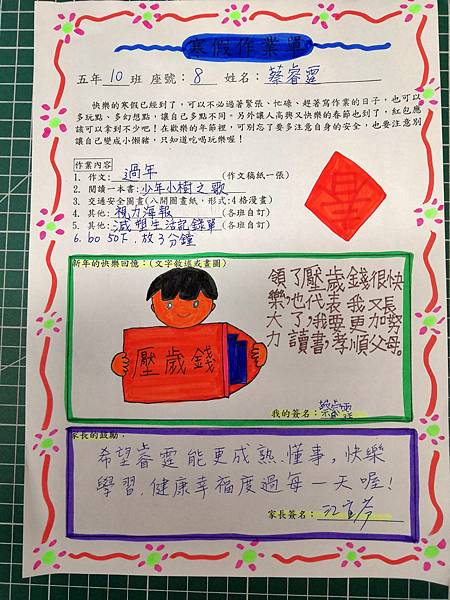 寒假作業單
五年 10 班 座號：8 姓名：蔡睿霆
快樂的寒假已經到了，可以不必過著緊張、忙碌、趕著寫作業的日子，也可以
多玩點、多幻想點，讓自己多點不同。另外讓人高興又快樂的春節也到了，紅包應
該可以拿到不少吧！在歡樂的年節裡，可別忘了要多注意自身的安全，也要注意別
讓自己變成小懶豬，只知道吃喝玩樂喔！
作業內容
1. 作文：過年(作文稿紙一張)
2. 閱讀一本書：少年小樹之歌
3. 交通安全圖畫(八開圖畫紙，形式：4格漫畫)
4. 其他：視力海報(各班自訂)
5. 其他：減塑生活記錄單(各班自訂)
6. bo 50下.放3分鐘
新年的快樂回憶：(文字敘述或畫圖)
領了壓歲錢很快
樂，也代表我又長
大了，我要更加努
力讀書，孝順父母。
壓歲錢
我的簽名：蔡睿霆
家長的鼓勵：
希望睿霆能更成熟.懂事，快樂
學習.健康幸福度過每一天喔！
家長簽名：